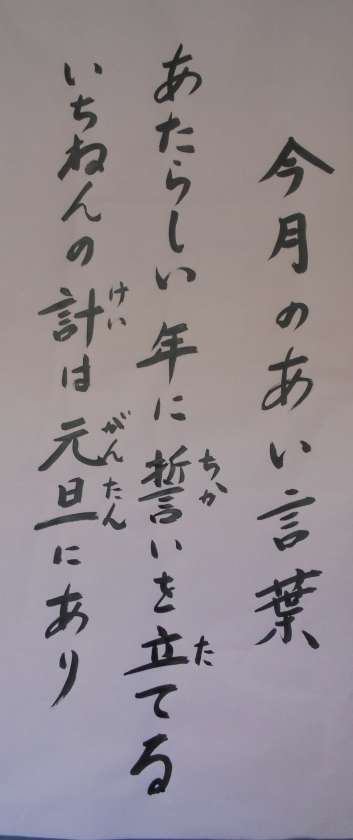 今月のあい言葉
あたらしい年に誓いを立てる
ちか
た
いちねんの計は元旦にあり
けい
がんたん